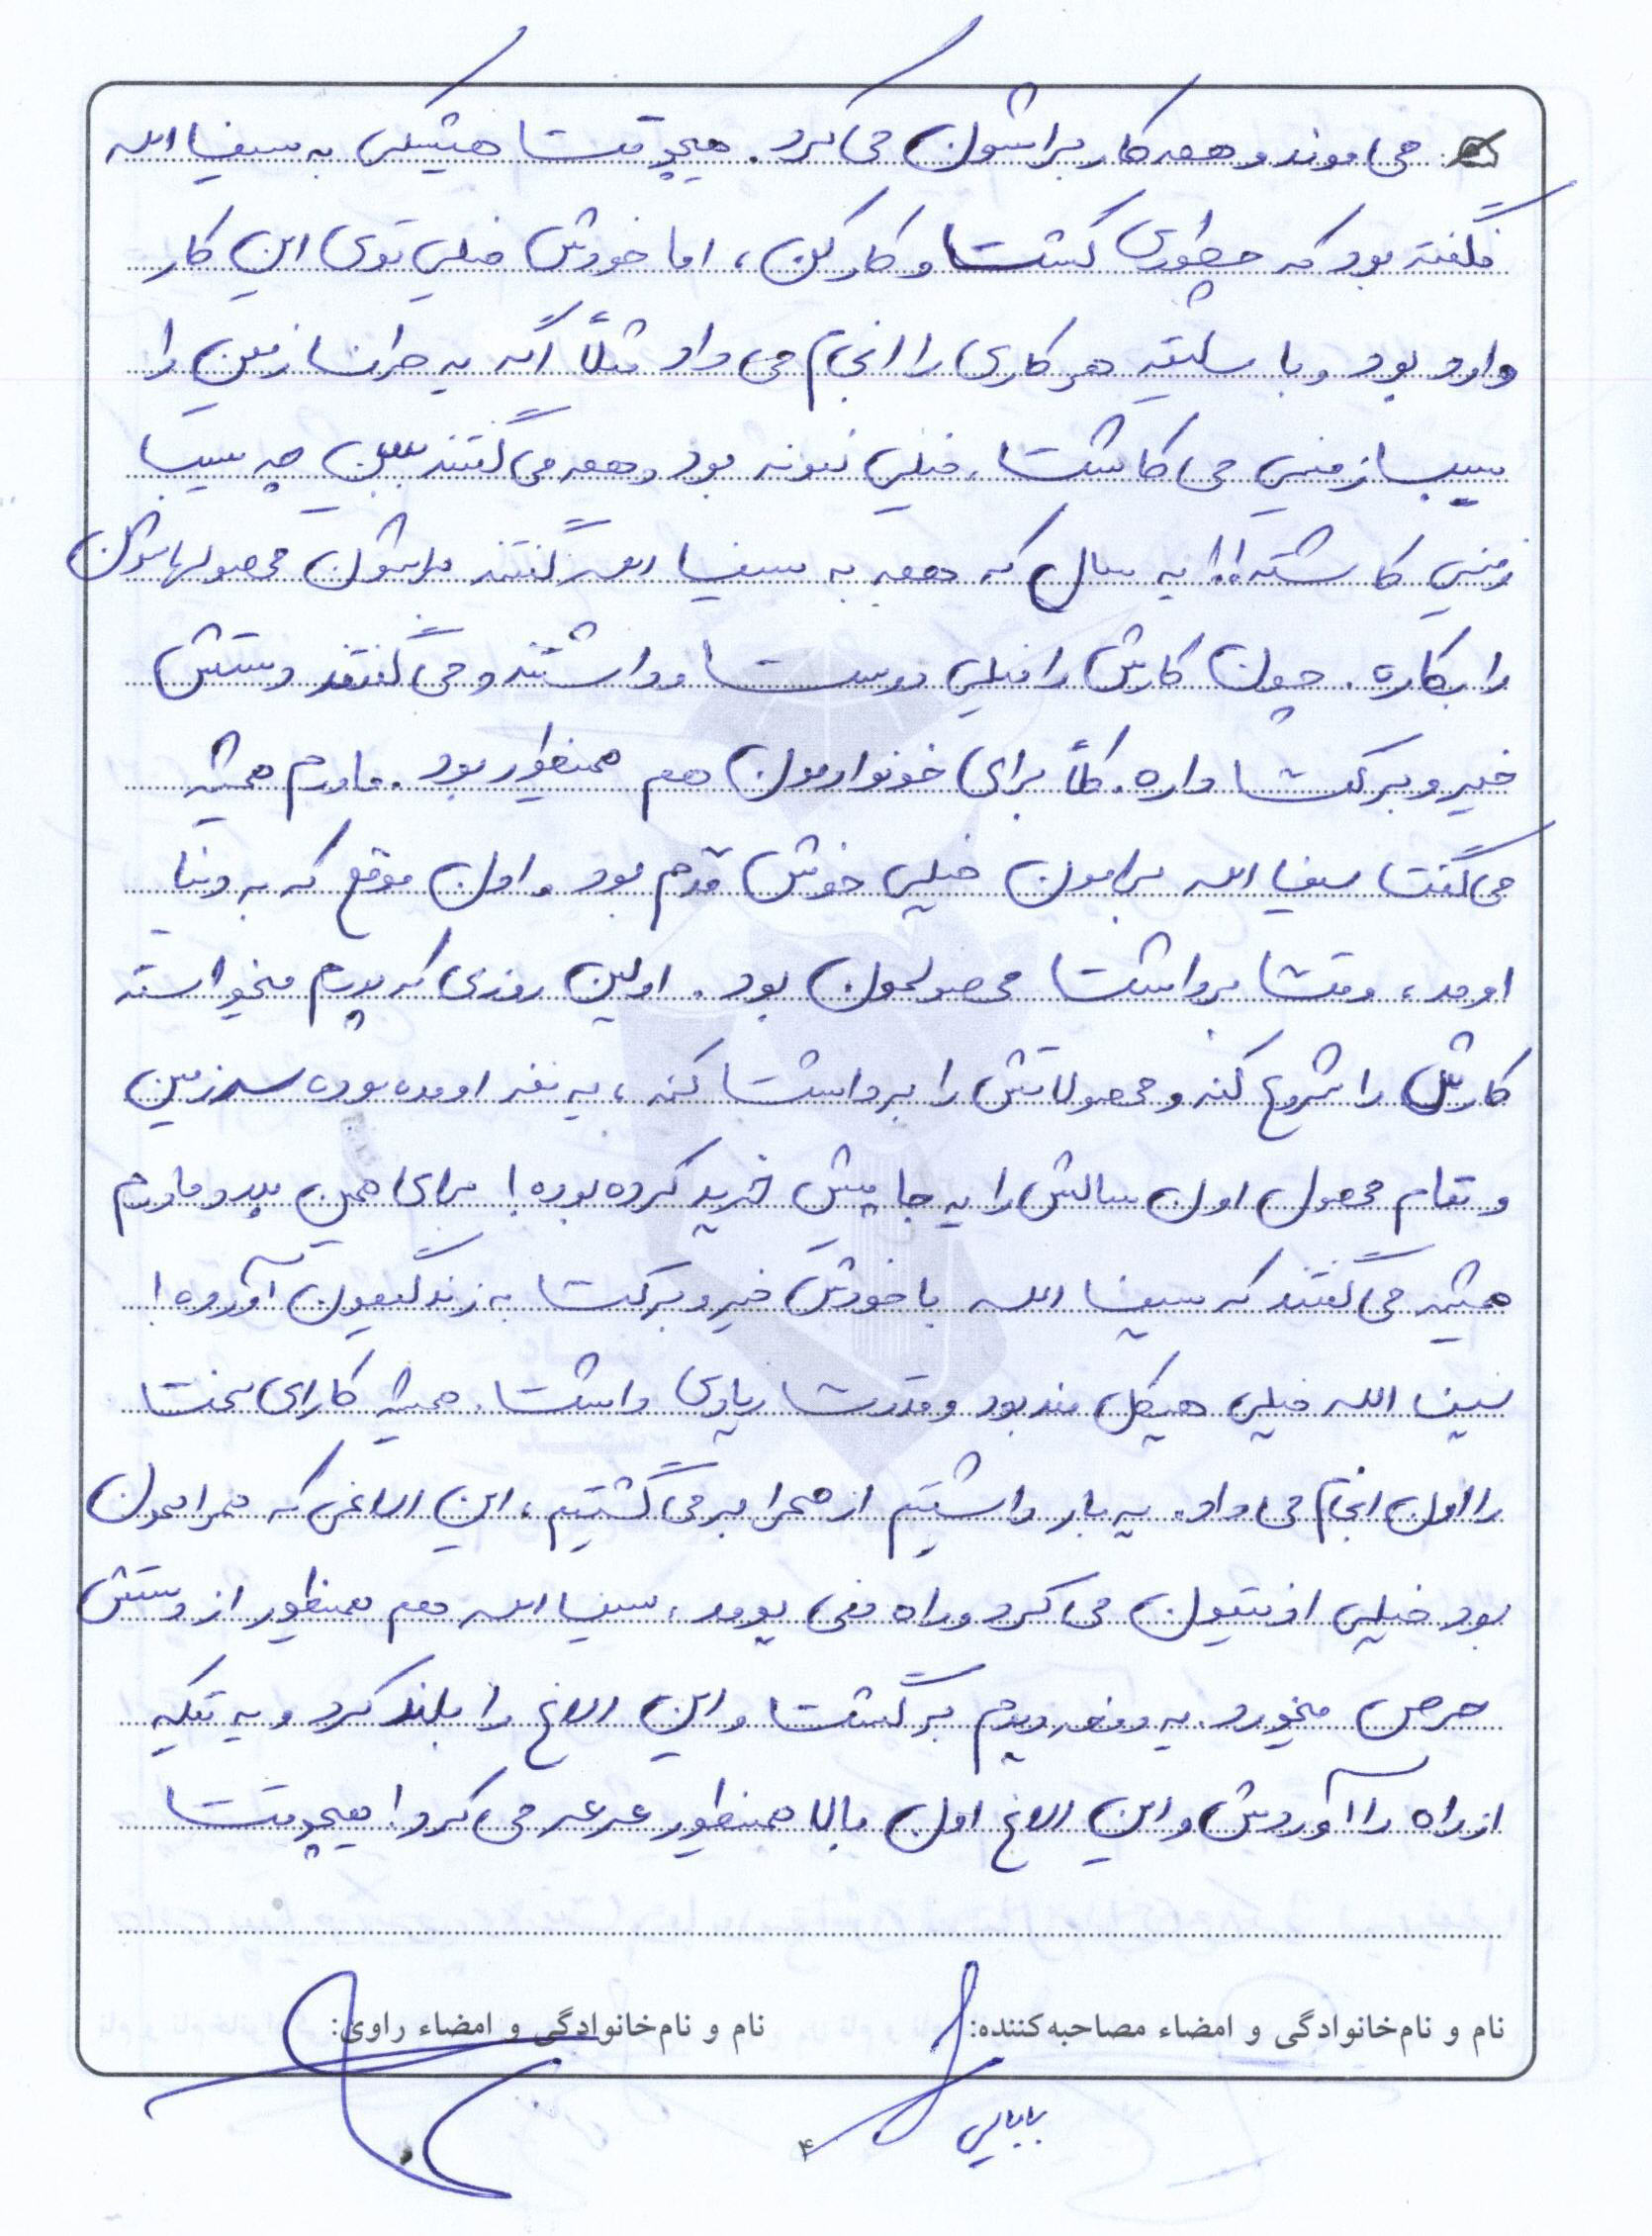 می‌موند و همه کار براشون می‌کرد. هیچوقت هیشکی به سیف الله
نگفته بود که چطوری کشت و کار کن، اما خودش خیلی توی این کار
وارد بود و با سلیقه هر کاری را انجام می‌داد مثلاً اگه یه طرف زمین را
سیب زمینی می‌کاشت، خیلی نمونه بود و همه می‌گفتند ببین چه سیب
زمینی کاشته!! یه سال که همه به سیف الله گفتند براشون محصولهاشون
را بکاره. چون کارش را خیلی دوست داشتند و می‌گفتند دستش
خیر و برکت داره. کلاً برای خونوادمون هم همینطور بود. مادرم همیشه
می‌گفت سیف الله برامون خیلی خوش قدم بود. اون موقع که به دنیا
اومد، وقت برداشت محصولمون بود. اولین روزی که پدرم میخواسته
کارش را شروع کنه و محصولاتش را برداشت کنه، یه نفر اومده بوده سر زمین
و تمام محصول اون سالش را یه جا پیش خرید کرده بوده! برای همین پدر و مادرم
همیشه می‌گفتند که سیف الله با خودش خیر و برکت به زندگیمون آورده!
سیف الله خیلی هیکل مند بود و قدرت زیادی داشت. همیشه کارای سخت
را اون انجام می‌داد. یه بار داشتیم از صحرا برمی‌گشتیم، این الاغی که همرامون
بود خیلی اذیتمون می‌کرد و راه نمی یومد، سیف الله هم همینطور از دستش
حرص میخورد. یه دفعه دیدم برگشت و این الاغ را بلند کرد و یه تیکه
از راه را آوردش و این الاغ اون بالا همینطور عرعر می‌کرد! هیچوقت
نام و نام‌خانوادگی و امضاء مصاحبه‌کننده: نام و نام‌خانوادگی و امضاء راوی:
بابایی
۴